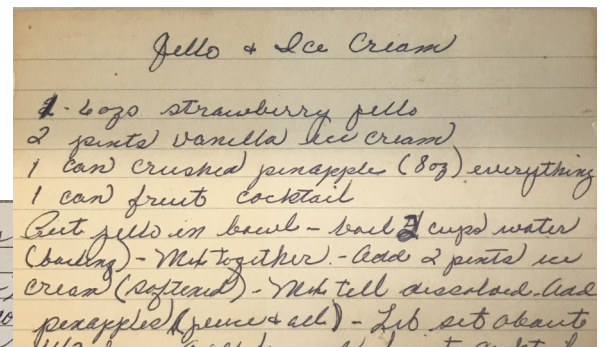 Jello & Ice Cream
1 - 6 ozs strawberry jello
2 pints vanilla ice cream
1 can crushed pinapple (8oz) everything
1 can fruit cocktail
Put jello in bowl - boil 2 cups water
(boiling) - Mix together. - Add 2 pints ice
cream (softened) - Mix tell dissolved. Add
penapples (juice & all) - Let set